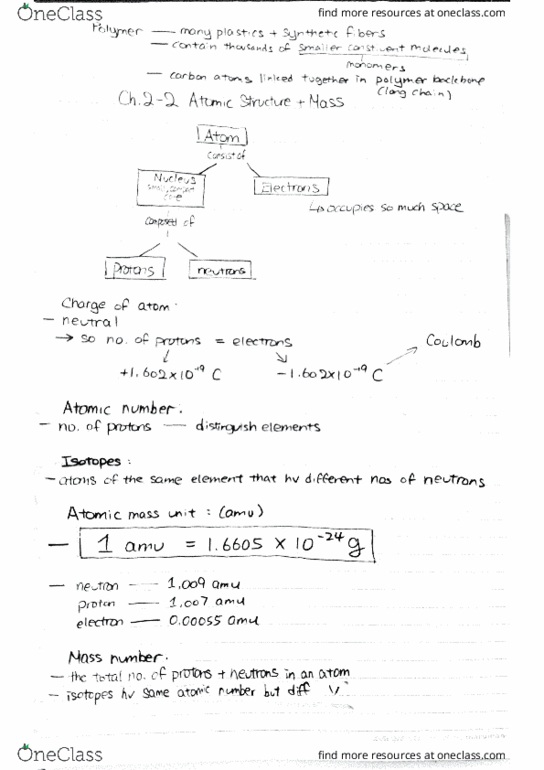 OneClass
find more resources at oneclass.com
Polymer — many plastics + synthetic fibers
— contain thousands of smaller constituent molecules
monomers
— carbon atoms linked together in polymer backbone
(long chain)
Ch.2-2 Atomic Structure + Mass
Atom
consist of
Nucleus
small, compact
core
Electrons
↳ occupies so much space
composed of
Protons
neutrons
Charge of atom:
— neutral
→ so no. of protons = electrons
Coulomb
+1.602×10⁻¹⁹ C
-1.602×10⁻¹⁹ C
Atomic number:
— no. of protons — distinguish elements
Isotopes:
— atoms of the same element that hv different nos of neutrons
Atomic mass unit: (amu)
— 1 amu = 1.6605 × 10⁻²⁴ g
— neutron — 1.009 amu
proton — 1.007 amu
electron — 0.00055 amu
Mass number:
— the total no. of protons + neutrons in an atom
— isotopes hv same atomic number but diff
OneClass
find more resources at oneclass.com